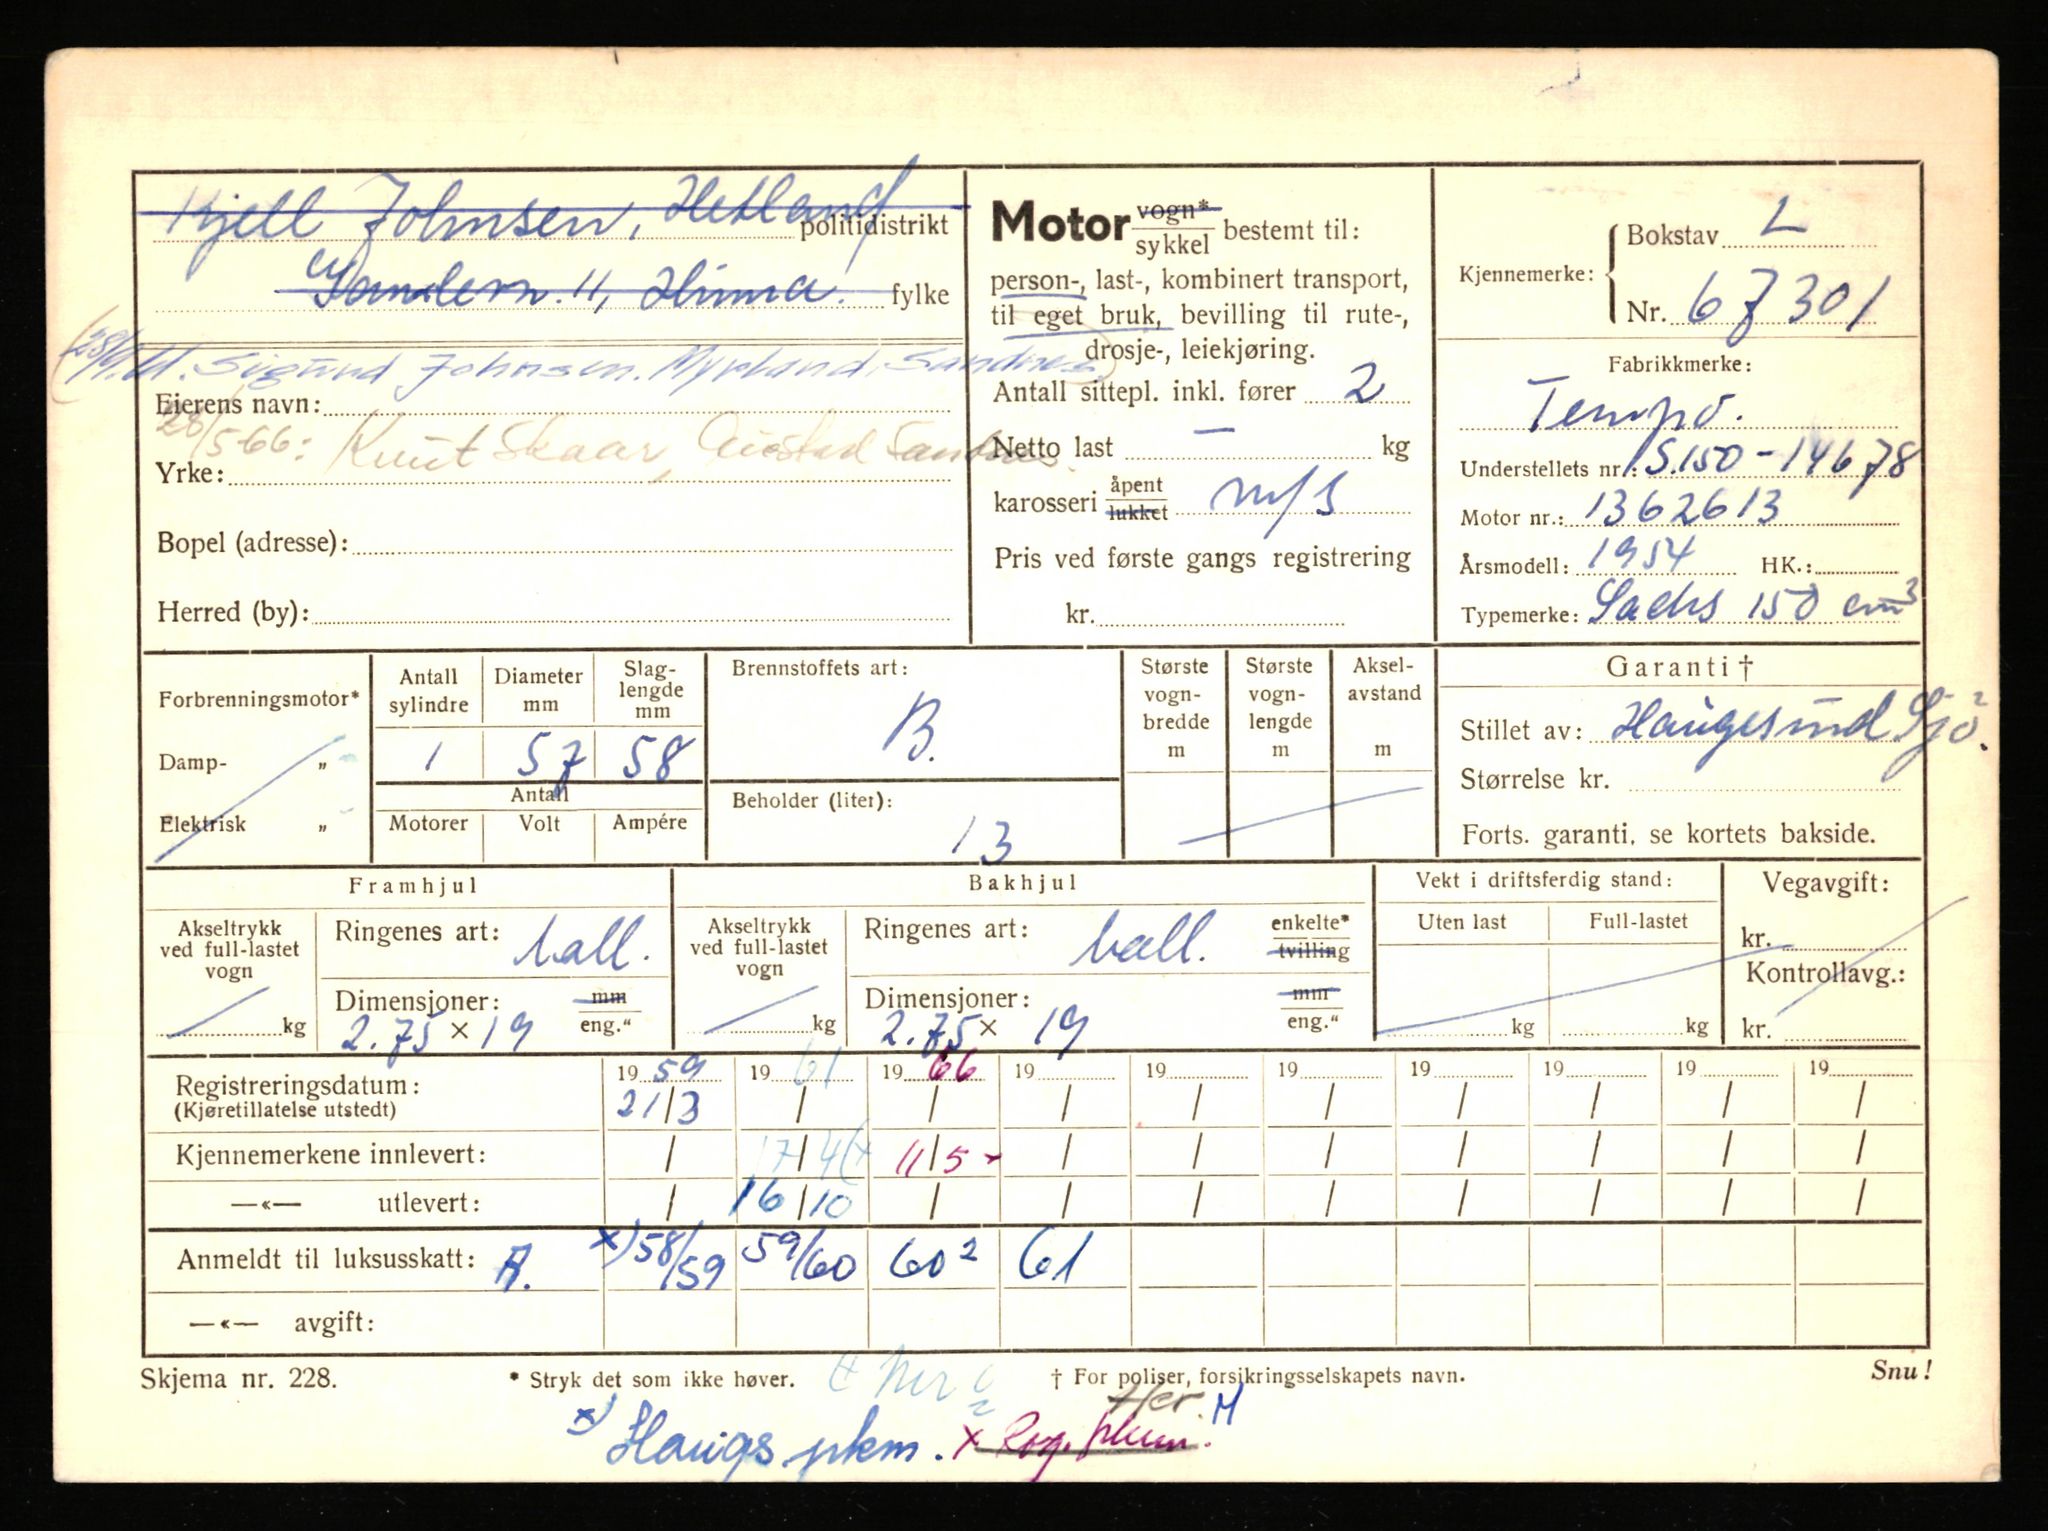 Kjell Johnsen, Hetland politidistrikt
11, Hinna. fylke
Sigund Johnsen. Myrland, Sandnes.
Eierens navn:
28/5-66: Knut Skaar, Sandnes.
Yrke:
Bopel (adresse):
Herred (by):
Motor vogn* / sykkel bestemt til:
person-, last-, kombinert transport,
til eget bruk, bevilling til rute-,
drosje-, leiekjøring.
Antall sittepl. inkl. fører 2
Netto last — kg
karosseri åpent / lukket m/s
Pris ved første gangs registrering
kr.
Kjennemerke: { Bokstav L
Nr. 67301
Fabrikkmerke:
Tempo.
Understellets nr.: S.150-14678
Motor nr.: 1362613
Årsmodell: 1954 HK.:
Typemerke: Sachs 150 cm3
Forbrenningsmotor*
Damp- „
Elektrisk „
Antall sylindre
Diameter mm
Slag-lengde mm
1 57 58
Antall
Motorer Volt Ampére
Brennstoffets art:
B.
Beholder (liter):
13
Største vogn-bredde m
Største vogn-lengde m
Aksel-avstand m
Garanti †
Stillet av: Haugesund Sjø.
Størrelse kr.
Forts. garanti, se kortets bakside.
Framhjul
Akseltrykk ved full-lastet vogn
kg
Ringenes art: ball.
Dimensjoner: mm / eng."
2.75 × 19
Bakhjul
Akseltrykk ved full-lastet vogn
kg
Ringenes art: ball. enkelte* / tvilling
Dimensjoner: mm / eng."
2.75 × 19
Vekt i driftsferdig stand:
Uten last Full-lastet
kg kg
Vegavgift:
kr.
Kontrollavg.:
kr.
Registreringsdatum: 19 59 19 61 19 66 19 19 19 19 19 19 19
(Kjøretillatelse utstedt) 21/3 / / / / / / / / /
Kjennemerkene innlevert: / 17/4 (+ 11/5 × / / / / / / /
—«— utlevert: / 16/10 / / / / / / / /
Anmeldt til luksusskatt: A. x) 58/59 59/60 60² 61
—«— avgift:
Skjema nr. 228. * Stryk det som ikke høver. † For poliser, forsikringsselskapets navn. Snu!
Her. M
x) Haugs. pkm. × Rog. pkm.